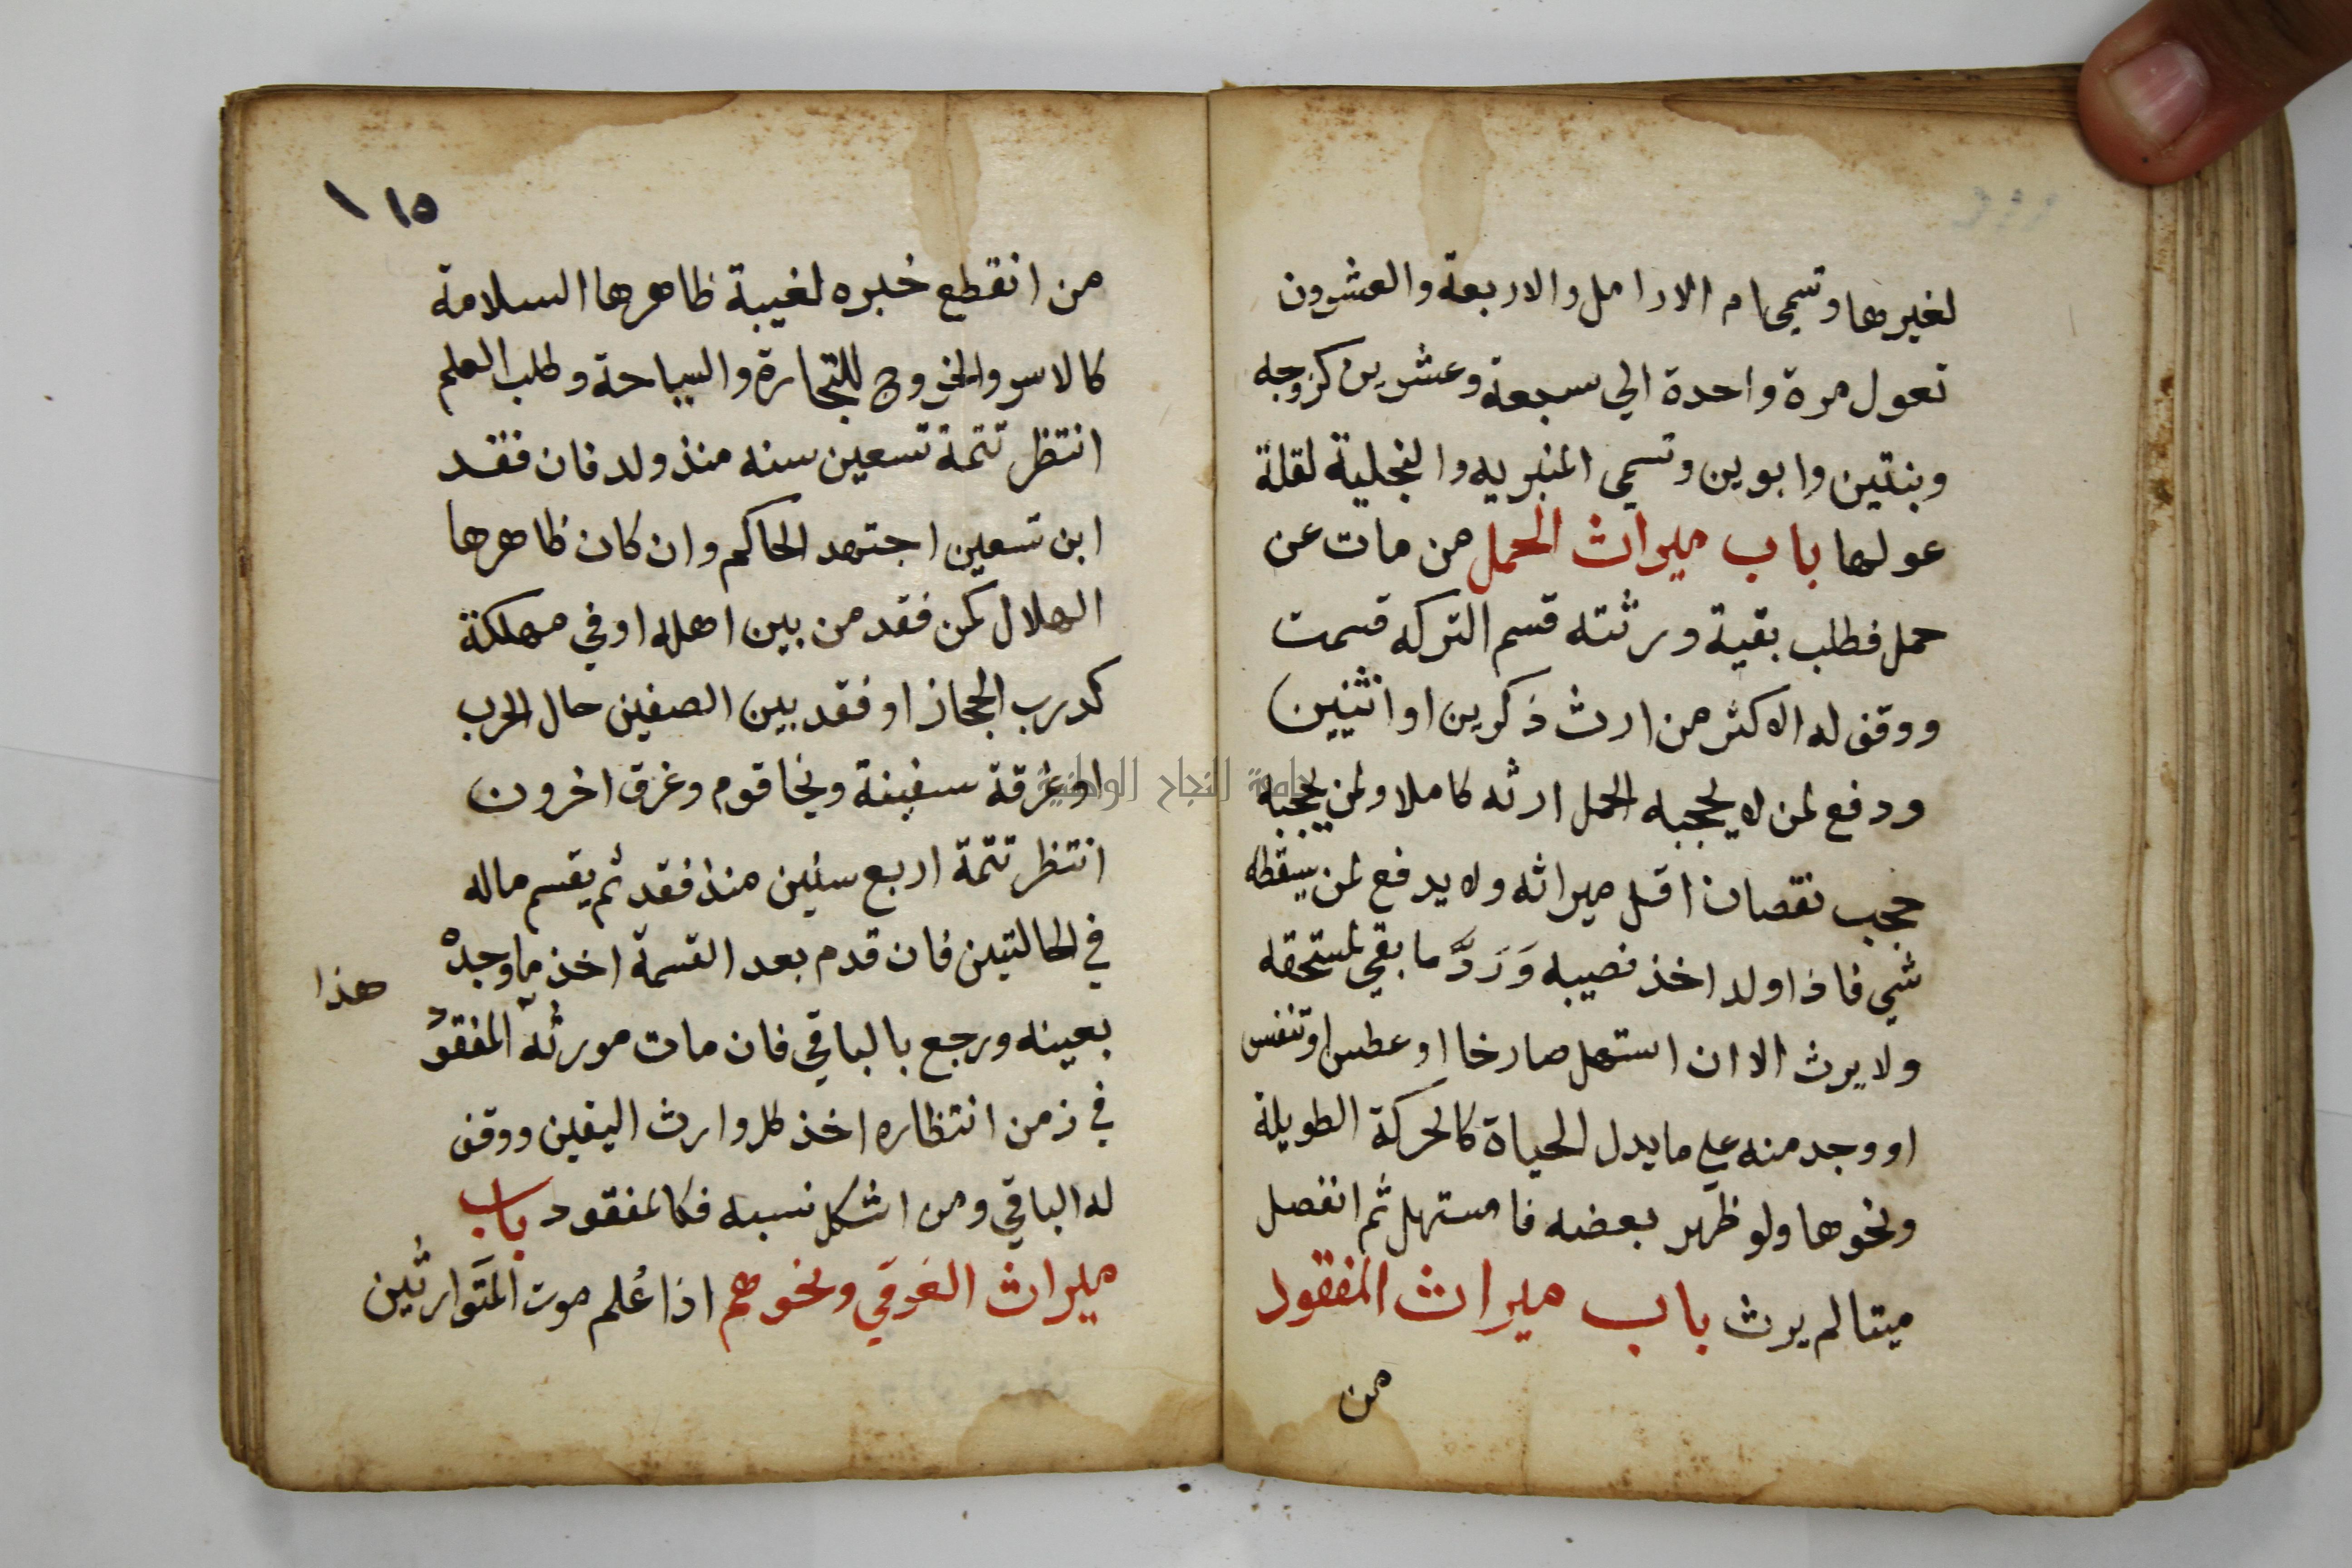 لغيرها وتسمي ام الارامل والاربعة والعشرون
تعول مرة واحدة الي سبعة وعشرين كزوجه
وبنتين وابوين وتسمي المنبريه والبخلية لقلة
عولها باب ميراث الحمل من مات عن
حمل فطلب بقية ورثته قسم التركه قسمت
ووقف له الاكثر من ارث ذكرين او انثيين
ودفع لمن لا يحجبه الحمل ارثه كاملا ولمن يحجبه
حجب نقصان اقل ميراثه ولا يدفع لمن يسقطه
شي فاذا ولد اخذ نصيبه وَرَدَّ ما بقي لمستحقه
ولا يرث الا ان استهل صارخا او عطس او تنفس
او وجد منه علي ما يدل الحياة كالحركة الطويلة
ونحوها ولو ظهر بعضه فاستهل ثم انفصل
ميتا لم يرث باب ميراث المفقود
من
١١٥
من انقطع خبره لغيبة ظاهرها السلامة
كالاسر والخروج للتجارة والسياحة وطلب العلم
انتظر تتمة تسعين سنه منذ ولد فان فقد
ابن تسعين اجتهد الحاكم وان كان ظاهرها
الهلال كمن فقد من بين اهله او في مهلكة
كدرب الحجاز او فقد بين الصفين حال الحرب
او غرقة سفينة ونجا قوم وغرق اخرون
انتظر تتمة اربع سنين منذ فقد ثم يقسم ماله
في الحالتين فان قدم بعد القسمة اخذ ما وجده
هذا
بعينه ورجع بالباقي فان مات مورثه المفقود
في زمن انتظاره اخذ كل وارث اليقين ووقف
له الباقي ومن اشكل نسبه فكالمفقود باب
ميراث الغرقي ونحوهم اذا عُلم موت المتوارثين
جامعة النجاح الوطنية